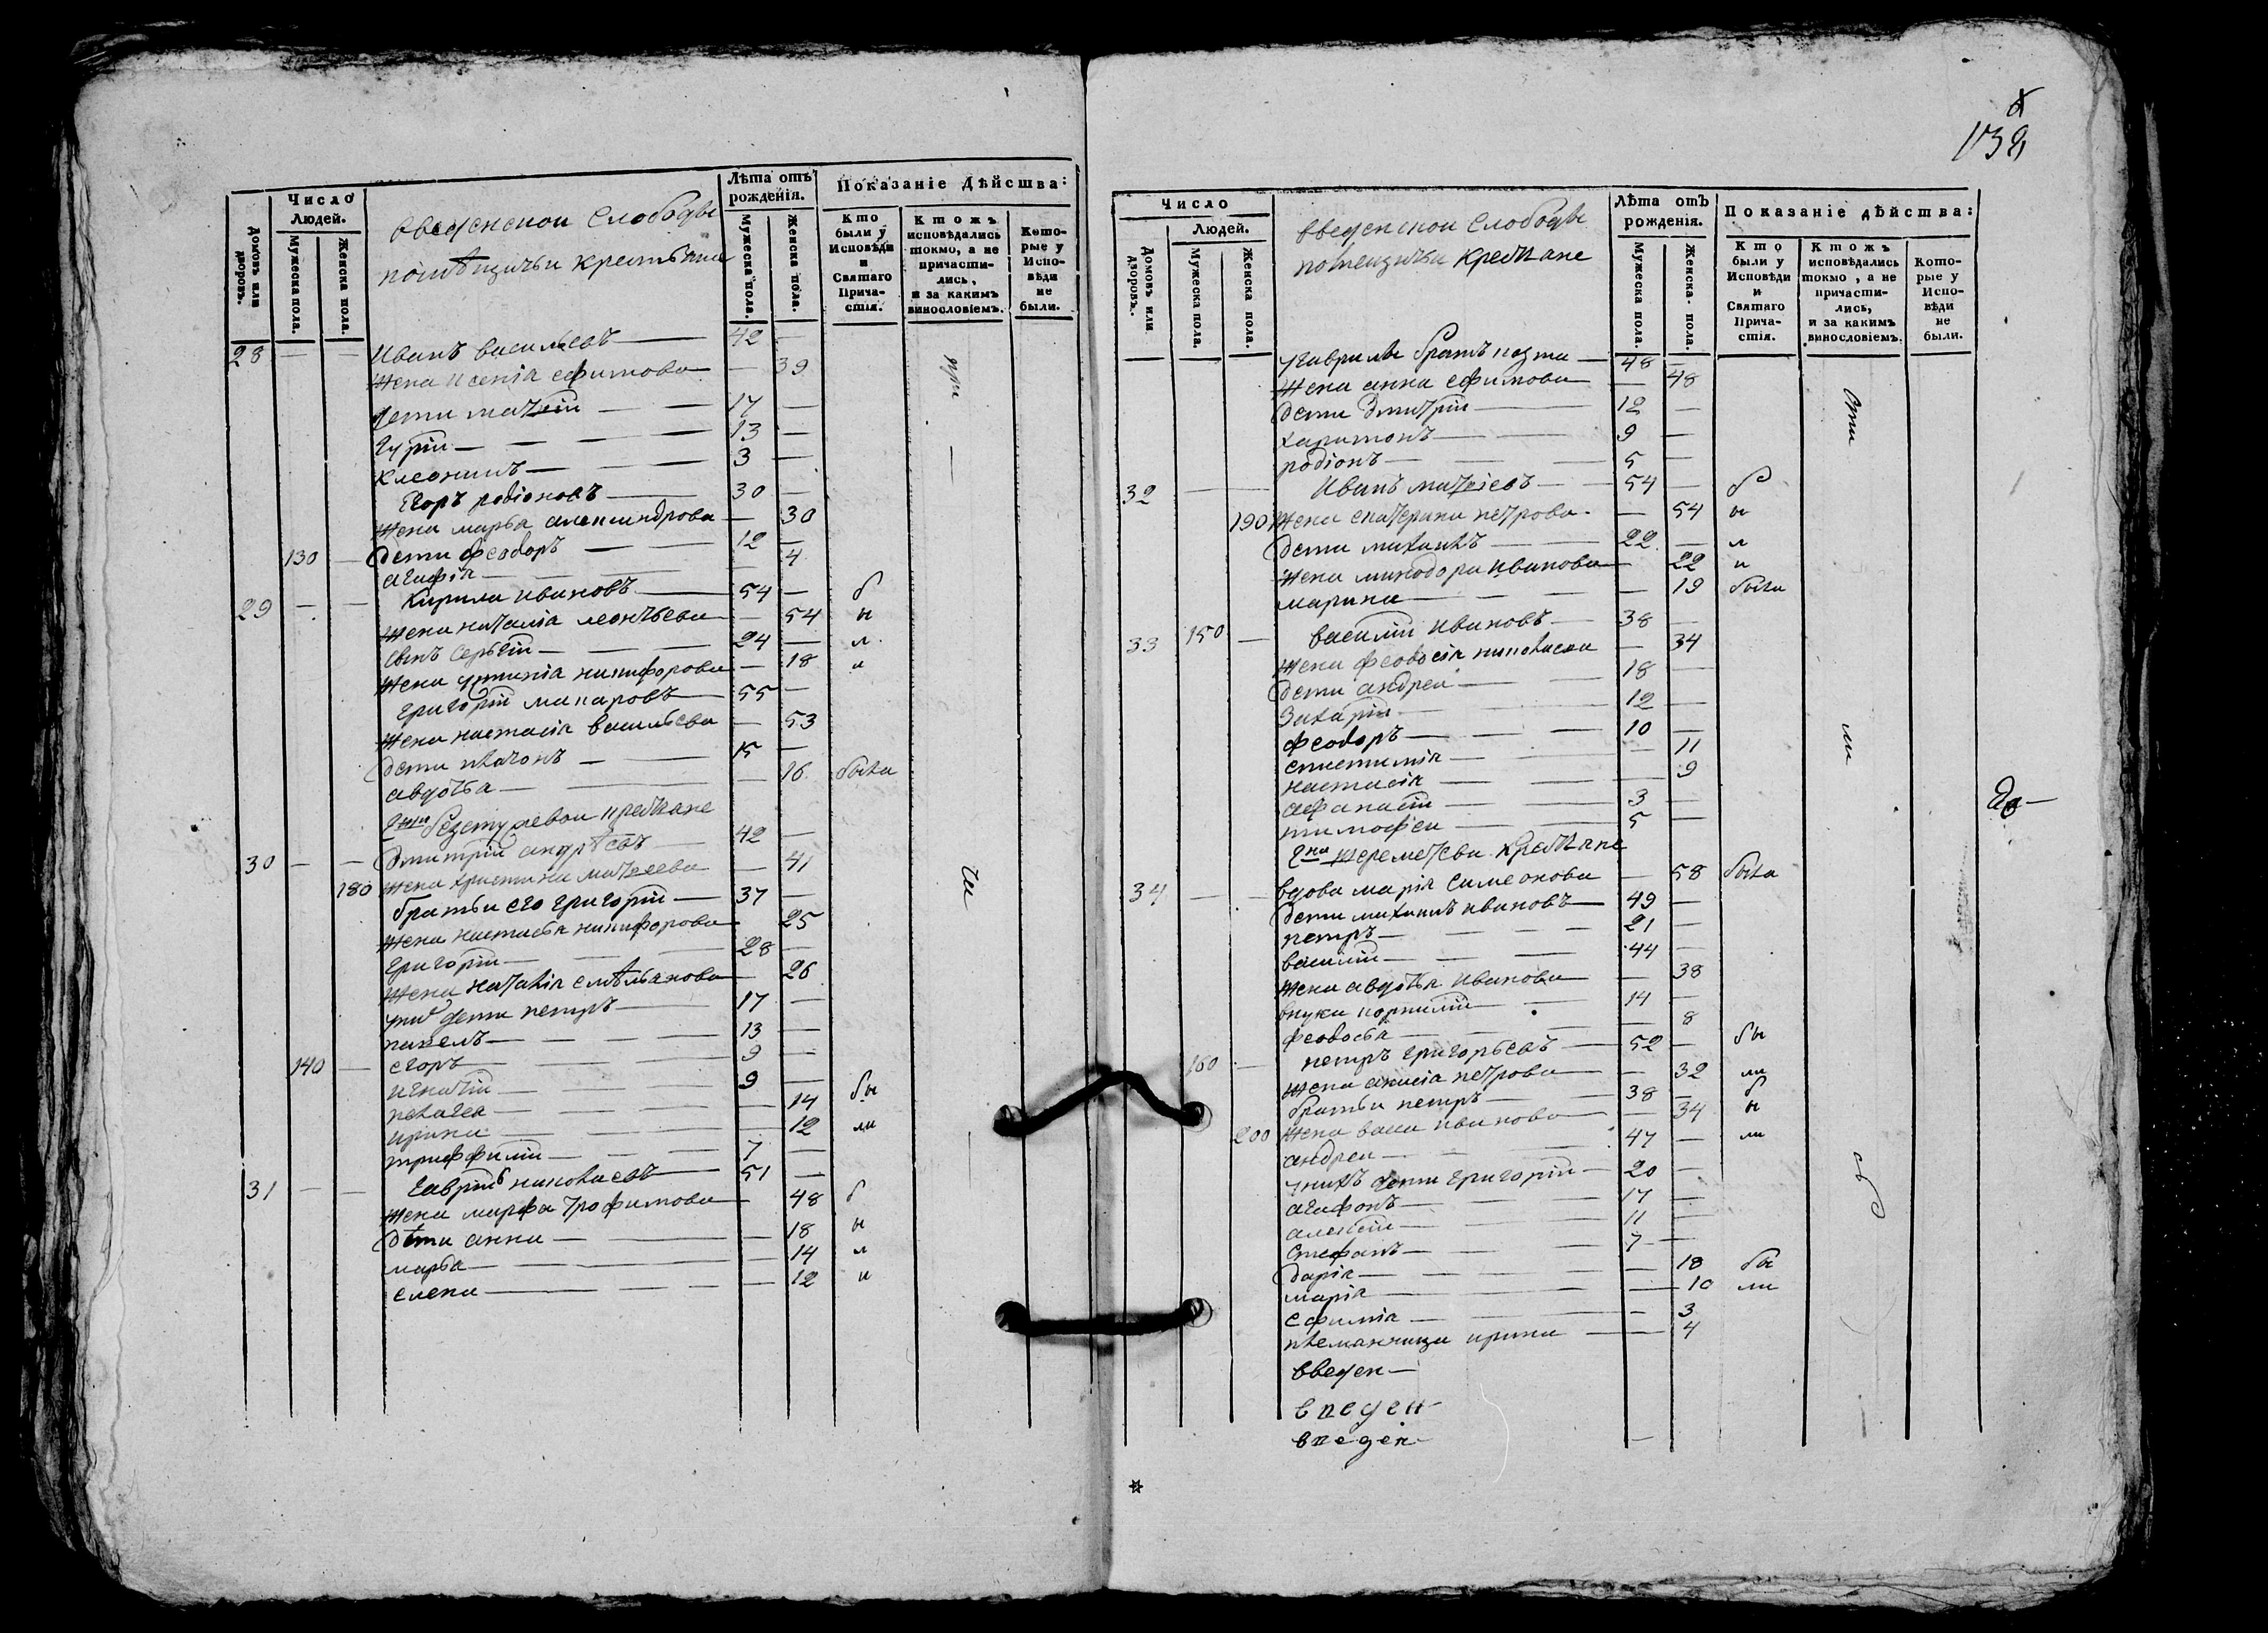 139
Домовъ или дворовъ.
Число Людей.
Мужеска пола.
Женска пола.
введенскои слободы
помѣщичьи крестьяне
Лѣта отъ рожденія.
Мужеска пола.
Женска пола.
Показаніе дѣйства:
Кто были у Исповѣди и Святаго Причастія.
Ктожъ исповѣдались токмо, а не причастились, и за какимъ винословіемъ.
Которые у Исповѣди не были.
28 — — Иванъ васильевъ — 42 —
жена ксенія ефимова — 39
дети матвеи — 17 —
гуріи — 13 —
3 —
Егоръ родіоновъ — 30 —
жена марѳа александрова — 30
130 — дети феодоръ — 12 —
агафія — 4
29 — — Кирила ивановъ — 54 — б
жена наталія леонтьева — 54 ы
сынъ сергіи — 24 — л
жена устинія никифорова — 18 и
григоріи макаровъ — 55 —
жена настасія васильева — 53
дети платонъ — 15 —
авдотья — 16 была
крестьяне
30 — — дмитріи андрѣевъ — 42 —
180 жена христина матвеева — 41
братьи его григоріи — 37 —
жена настасья никифорова — 25
григоріи — 28 —
жена наталія емѣльянова — 26
дети петръ — 17 —
павелъ — 13 —
140 — егоръ — 9 —
игнатіи — 9 —
пелагея — 14 бы
ирина — 12 ли
триффиліи — 7 —
31 — — гаврила николаевъ — 51 —
жена марфа трофимова — 48 б
дѣти анна — 18 ы
марѳа — 14 л
елена — 12 и
при
Число Людей.
Домовъ или дворовъ.
Мужеска пола.
Женска пола.
введенскои слободы
помещичьи крестьяне
Лѣта отъ рожденія.
Мужеска пола.
Женска пола.
Показаніе дѣйства:
Кто были у Исповѣди и Святаго Причастія.
Ктожъ исповѣдались токмо, а не причастились, и за какимъ винословіемъ.
Которые у Исповѣди не были.
угаврилы братъ козма — 48 —
жена анна ефимова — 48
дети дмитріи — 12 —
харитонъ — 9 —
родіонъ — 5 —
32 — — Иванъ матвіевъ — 54 — б
190 жена екатерина петрова — 54 ы
дети михаилъ — 22 — л
жена минодора иванова — 22 и
марина — 19 была
33 150 — василіи ивановъ — 38 —
жена феодосія николаева — 34
дети андреи — 18 —
захаріи — 12 —
феодоръ — 10 —
11
настасія — 9
афанасіи — 3 —
тимофеи — 5 —
шереметева крестьяне
34 — — вдова марія симеонова — 58 была
дети михаилъ ивановъ — 49 —
петръ — 21 —
василіи — 44 —
жена авдотья иванова — 38
внуки корниліи — 14 —
феодосья — 8
160 — петръ григорьевъ — 52 — бы
жена анисія петрова — 32 ли
братьи петръ — 38 — б
200 жена васса иванова — 34 ы
андреи — 47 — ли
унихъ дети григоріи — 20 —
агафонъ — 17 —
алексіи — 11 —
стефанъ — 7 —
дарія — 18 бы
марія — 10 ли
ефимія — 3
племянница ирина — 4
сти
ли
сь
введен—
введен—
введен—